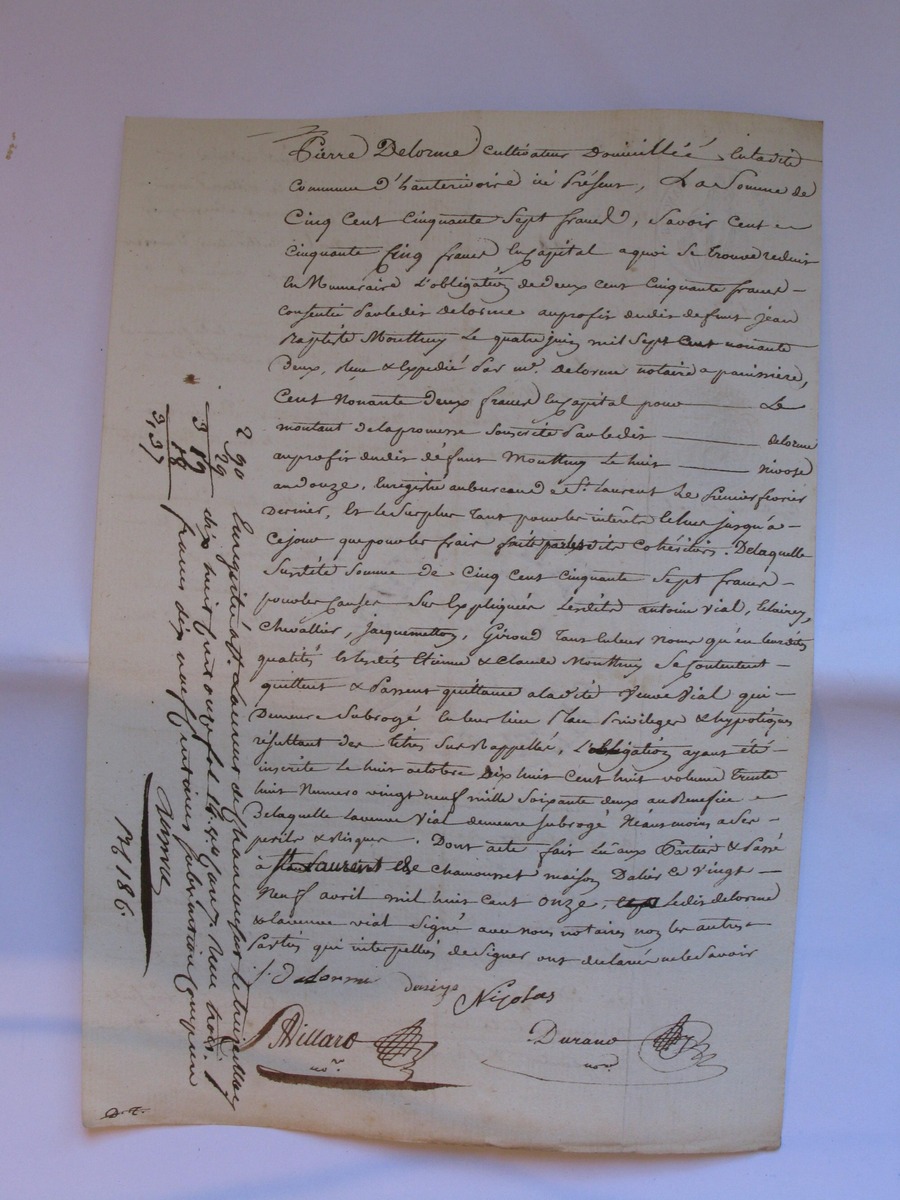 Pierre Delorme cultivateur Domicillié, Entadite
commune d'hauterivoire ici Présent, La Somme de
Cinq Cent Cinquante Sept francs, Savoir Cent
cinquante Cinq francs En capital aquoi Se trouve reduit
En Numeraire L'obligation de deux cent Cinquante francs
Consentie Parledit Delorme auprofit dudit defunt jean
Baptiste Moulthuy Le quatre juin mil Sept Cent nonante
Deux, Reçu & Expedié Par me. Delorme notaire apanissiere,
Cent Nonante deux francs En Capital pour Le
montant delapromesse Souscrite Parledit delorme
auprofit dudit défunt Moulthuy Le huit nivose
an douze, Enregistré aubureau de St. Laurent Le Premier fevrier
Dernier, Et le Surplus Tant pour les intérêts Echus jusqu'a
Cejour que pour les frais Cohéritiers. Delaquelle
Susdite Somme de Cinq Cent Cinquante Sept francs
pour les Causes Sur Expliquées Lesdits antoine Vial,
Chevallier, Jacquemetton, Giroud Tant En leur Noms qu'en leurdites
qualités Et lesdits Etienne & Claude Moulthuy Se Contentent
quittent & Passent quittance aladite Veuve Vial qui
Demeure Subrogé En leur lieu Place Privileges & hypotèques
résultant des titres Sus Rappellés, L'obligation ayant été
inscrite Le huit octobre Dix huit Cent huit volume Trente
huit Numero vingt neuf mille Soixante deux au Benefice
Delaquelle Laveuve Vial demeure Subrogé Néansmoins a Ses
perils & Risques. Dont acte fait Lu aux Parties & Passé
à St Laurent de Chamousset maison Dalier Ce Vingt
Neuf avril mil huit Cent onze, Ledit delorme
& laveuve vial Signé avec nous notaires non les autres
Parties qui interpellés de Signer ont declaré ne le Savoir
P. Delorme
Nicolas
Villard
nore.
Durand
nore.
2 90
29
3 19
18
3,37
Enregistré a St. Laurent de Chamousset le trois may
dix huit cent onze fol. Reçu trois
francs dix neuf Centimes Subvention Comprise
No 186.